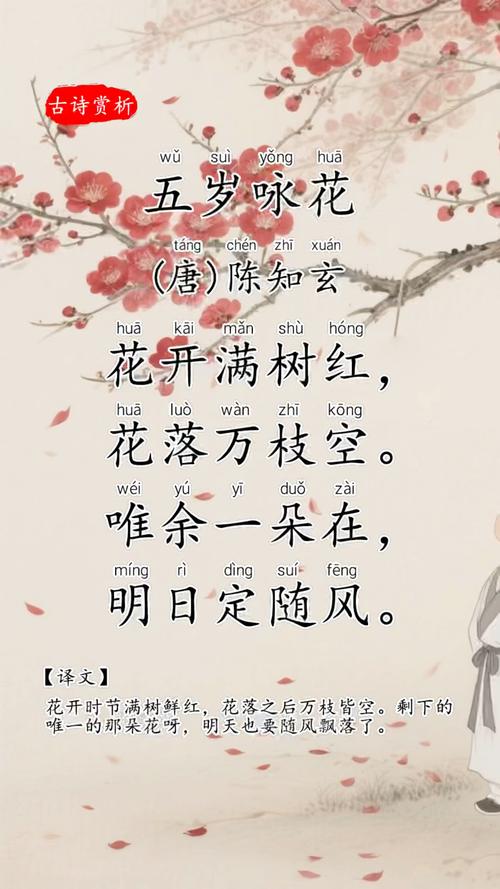 古诗赏析
wǔ suì yǒng huā
五岁咏花
táng chén zhī xuán
(唐)陈知玄
huā kāi mǎn shù hóng
花开满树红，
huā luò wàn zhī kōng
花落万枝空。
wéi yú yī duǒ zài
唯余一朵在，
míng rì dìng suí fēng
明日定随风。
【译文】
花开时节满树鲜红，花落之后万枝皆空。剩下的
唯一的那朵花呀，明天也要随风飘落了。